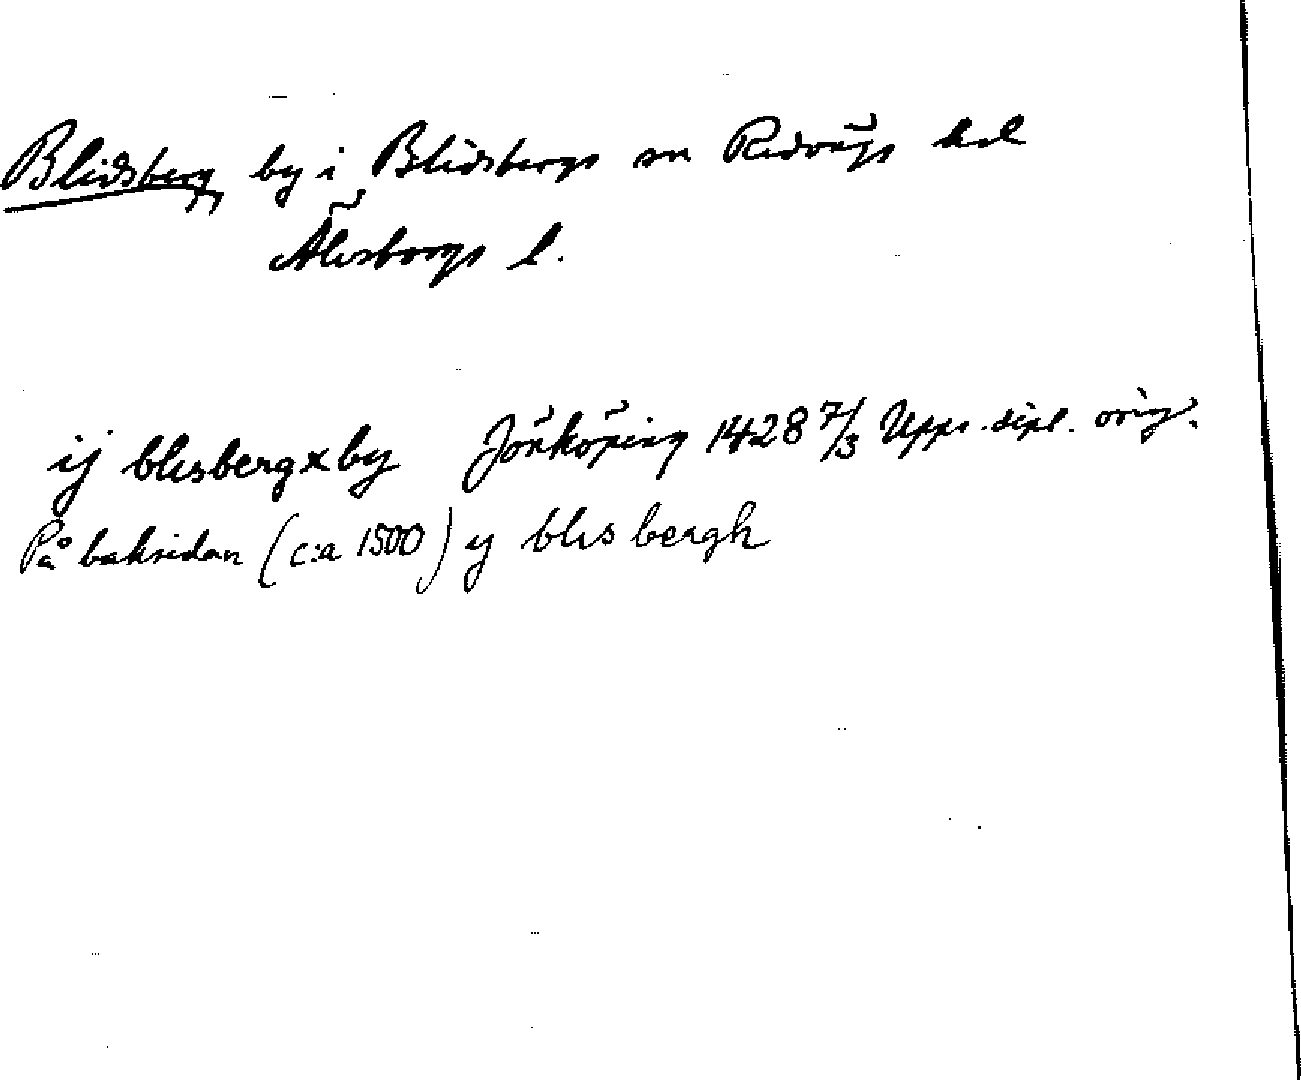 Blidsberg by i Blidsbergs sn Redvägs hd
Älvsborgs l.
ij blisbergxby Jönköping 1428 7/3 Upps. dipl. orig.
På baksidan (c:a 1500) ij blisbergh